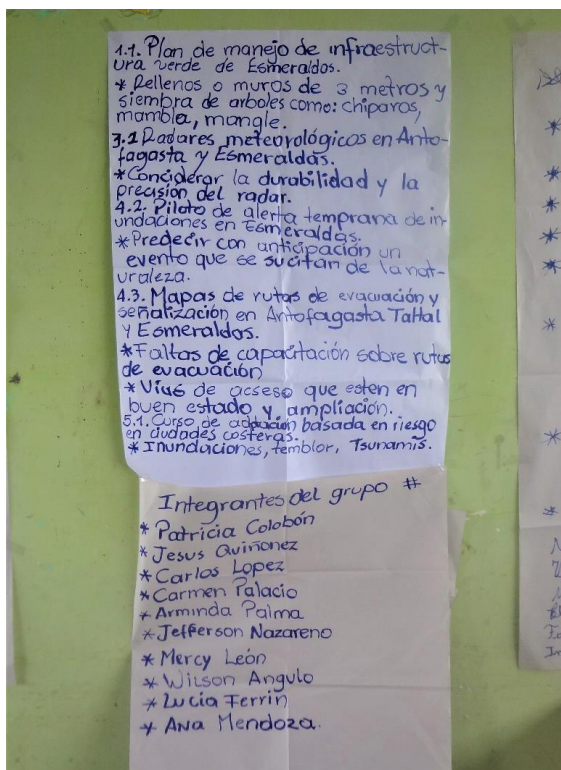 1.1. Plan de manejo de infraestruct-
ura verde de Esmeraldos.
* Rellenos o muros de 3 metros y
siembra de arboles como: chiparos,
mambla, mangle.
3.1 Radares meteorológicos en Anto-
fagasta y Esmeraldas.
* Conciderar la durabilidad y la
precisión del radar.
4.2. Piloto de alerta temprana de in-
undaciones en Esmeraldas.
* Predecir con anticipación un
evento que se sucitan de la nat-
uraleza.
4.3. Mapas de rutas de evacuación y
señalización en Antofagasta Taltal
y Esmeraldos.
* Faltas de capacitación sobre rutas
de evacuación
* Vias de acseso que esten en
buen estado y ampliación.
5.1. Curso de basada en riesgo
en ciudades costeras.
* Inundaciones, temblor, Tsunamis.
Integrantes del grupo #
* Patricia Colobón
* Jesus Quiñonez
* Carlos Lopez
* Carmen Palacio
* Arminda Palma
* Jefferson Nazareno
* Mercy León
* Wilson Angulo
* Lucia Ferrin
* Ana Mendoza.